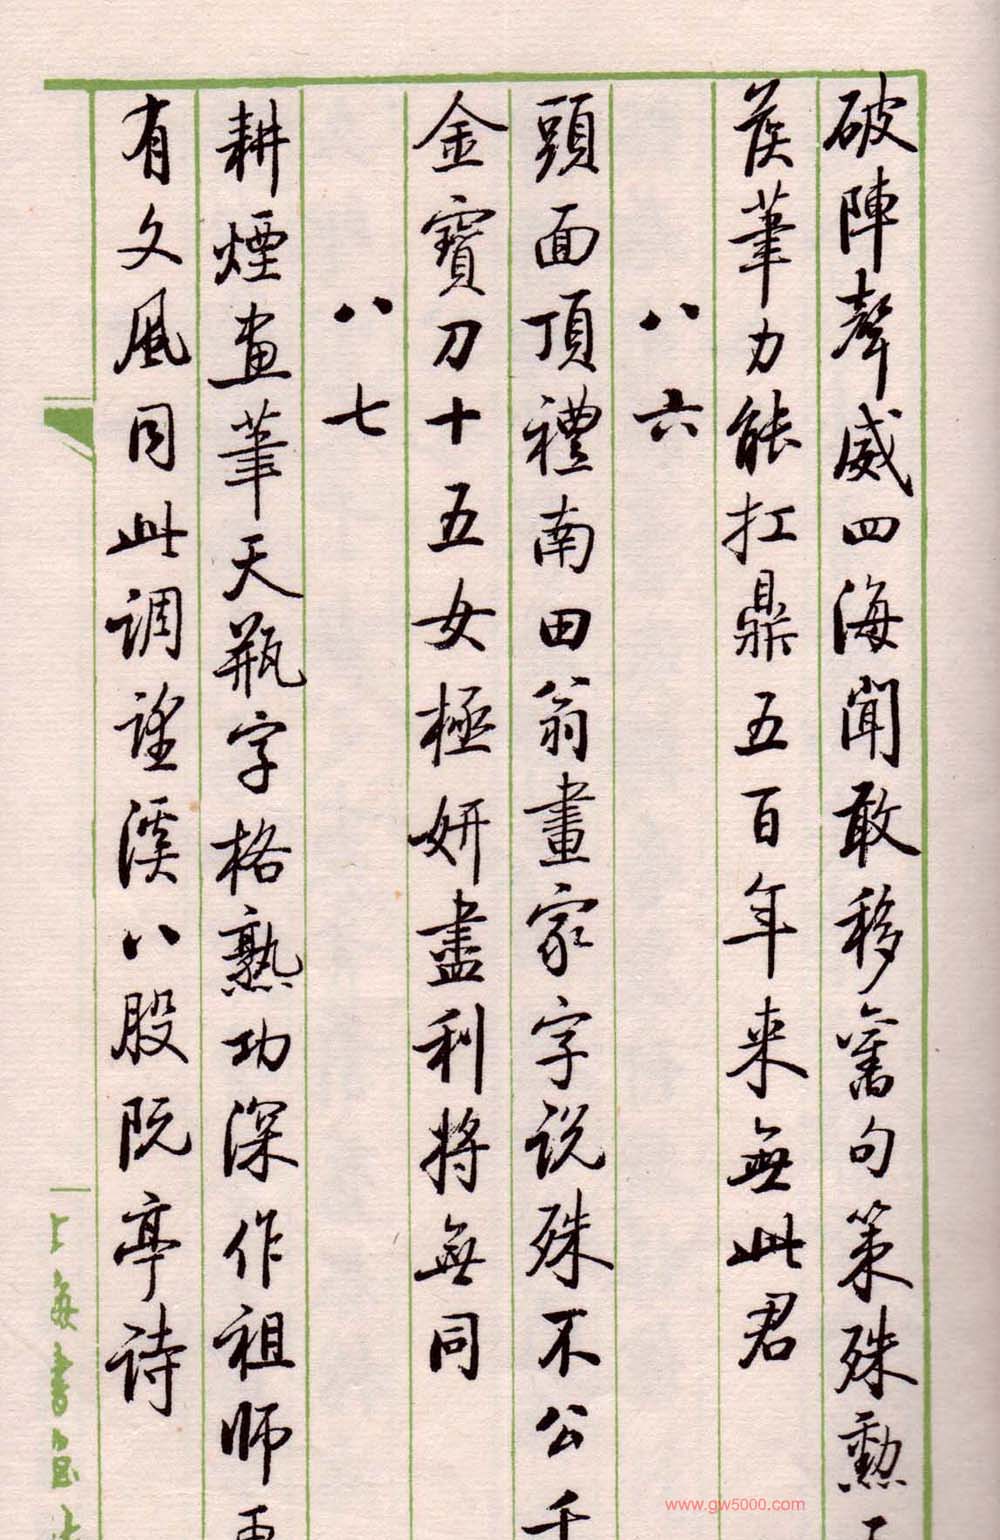 破陣聲威四海聞敢移舊句策殊勳
侯筆力能扛鼎五百年来無此君
八六
頭面頂禮南田翁畫家字说殊不公千
金寶刀十五女極妍盡利將無同
八七
耕煙画筆天瓶字格熟功深作祖師
有文風同此調望溪八股阮亭诗
上海書画
www.gw5000.com